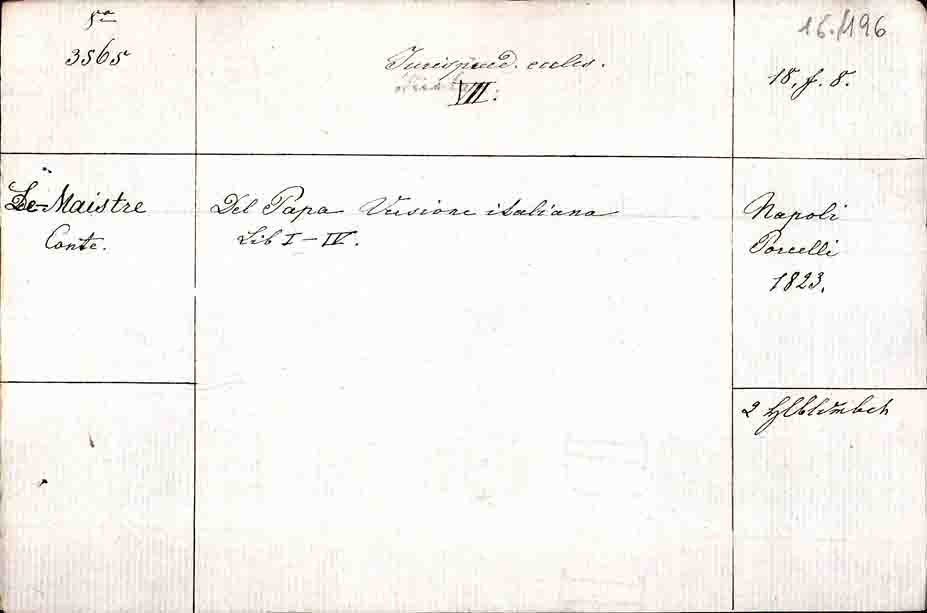 5a
3565
Jurisprud. eccles.
VII:
16./196
18. f. 8.
Le Maistre
Conte.
Del Papa Versione italiana
Lib I – IV.
Napoli
Porcelli
1823.
2 Hlblrnbch